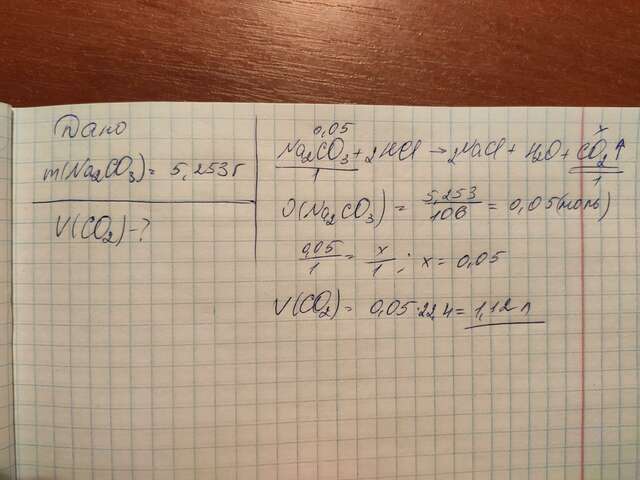 Дано
m(Na₂CO₃) = 5,253г
V(CO₂) - ?
0,05 x
Na₂CO₃ + 2HCl → 2NaCl + H₂O + CO₂↑
1 1
υ(Na₂CO₃) = 5,253/106 = 0,05(моль)
0,05/1 = x/1 ; x = 0,05
V(CO₂) = 0,05·22,4 = 1,12л